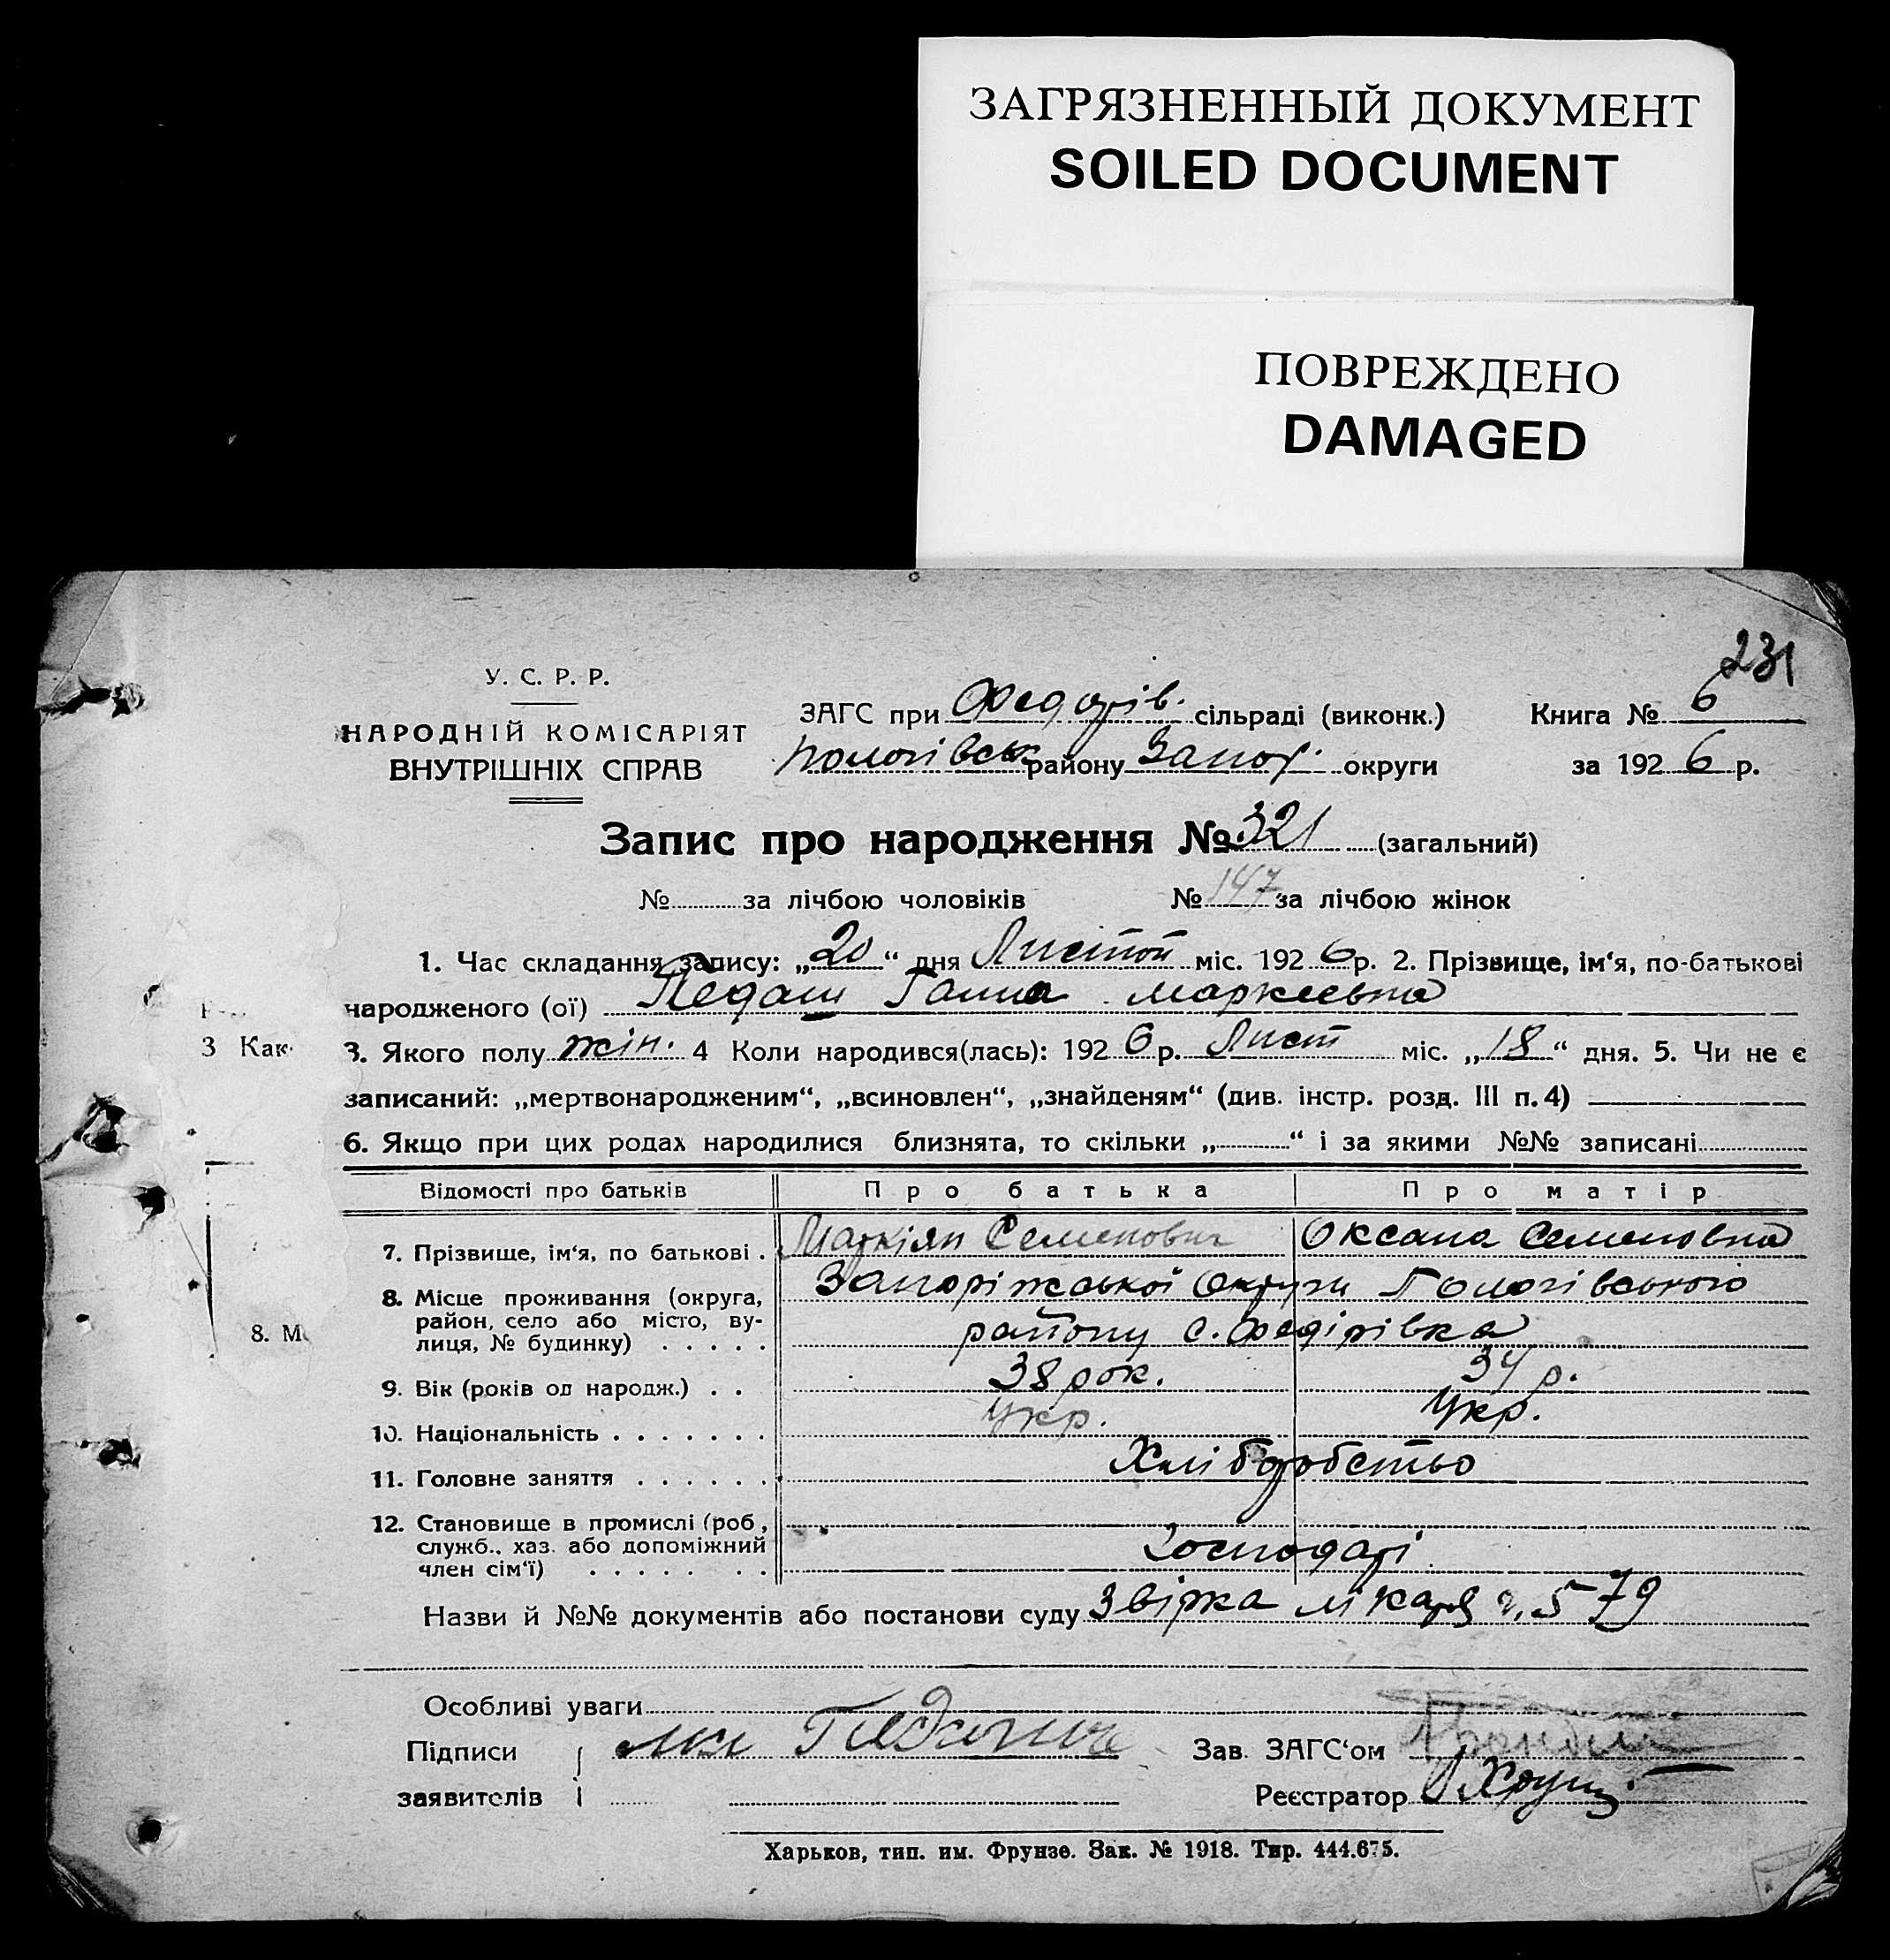 ЗАГРЯЗНЕННЫЙ ДОКУМЕНТ
SOILED DOCUMENT
ПОВРЕЖДЕНО
DAMAGED
231
У. С. Р. Р.
НАРОДНІЙ КОМІСАРІЯТ
ВНУТРІШНІХ СПРАВ
ЗАГС при Федорів. сільраді (виконк.) Книга № 6
Пологівськ району Запор. округи за 1926 р.
Запис про народження № 321 (загальний)
№ за лічбою чоловіків № 147 за лічбою жінок
1. Час складання запису: „20“ дня Листоп міс. 1926 р. 2. Прізвище, ім'я, по-батькові
народженого (ої) Педаш Ганна Маркіевна
3 Как
3. Якого полу жін. 4 Коли народився(лась): 1926 р. Лист міс. „18“ дня. 5. Чи не є
записаний: „мертвонародженим“, „всиновлен“, „знайденям“ (див. інстр. розд. III п. 4)
6. Якщо при цих родах народилися близнята, то скільки „ “ і за якими №№ записані
Відомості про батьків Про батька Про матір
7. Прізвище, ім'я, по батькові . Маркіян Семенович Оксана Семеновна
8. Місце проживання (округа, Запоріжської Округи Пологівського
район, село або місто, ву-
8. М
лиця, № будинку) . . . . . району с. Федірівка
9. Вік (років од народж.) . . 38 рок. 34 р.
10. Національність . . . . . . . Укр. Укр.
11. Головне заняття . . . . . . Хліборобство
12. Становище в промислі (роб.,
служб., хаз. або допоміжний
член сім'ї) . . . . . . . Господарі
Назви й №№ документів або постанови суду Звірка лікаря ч. 579
Особливі уваги
Підписи Зав. ЗАГС'ом
заявителів Реєстратор Хрущ
Харьков, тип. им. Фрунзе. Зак. № 1918. Тир. 444.675.